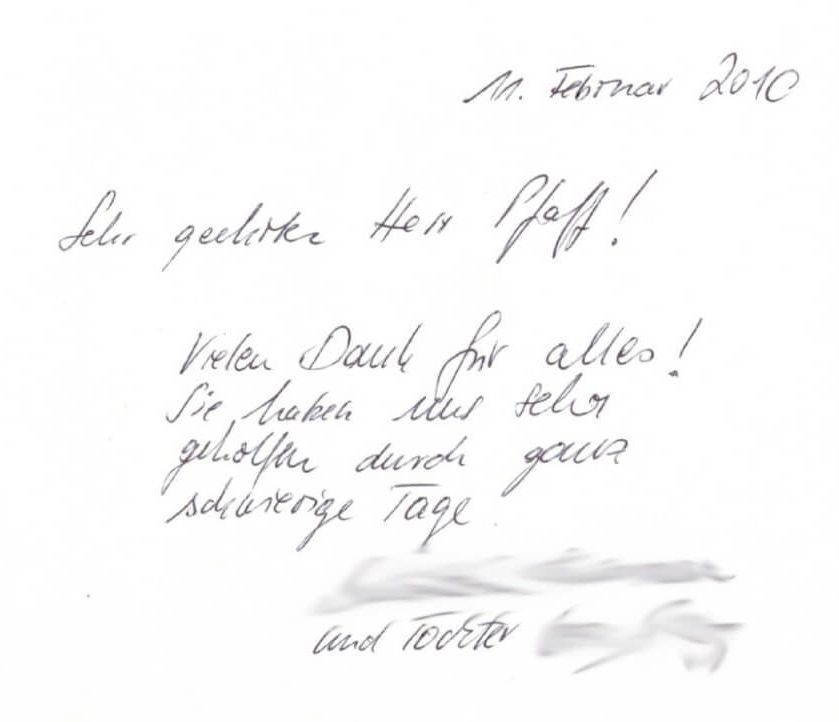 11. Februar 2010
Sehr geehrter Herr Pfaff!
Vielen Dank für alles!
Sie haben uns sehr
geholfen durch ganz
schwierige Tage
und Tochter